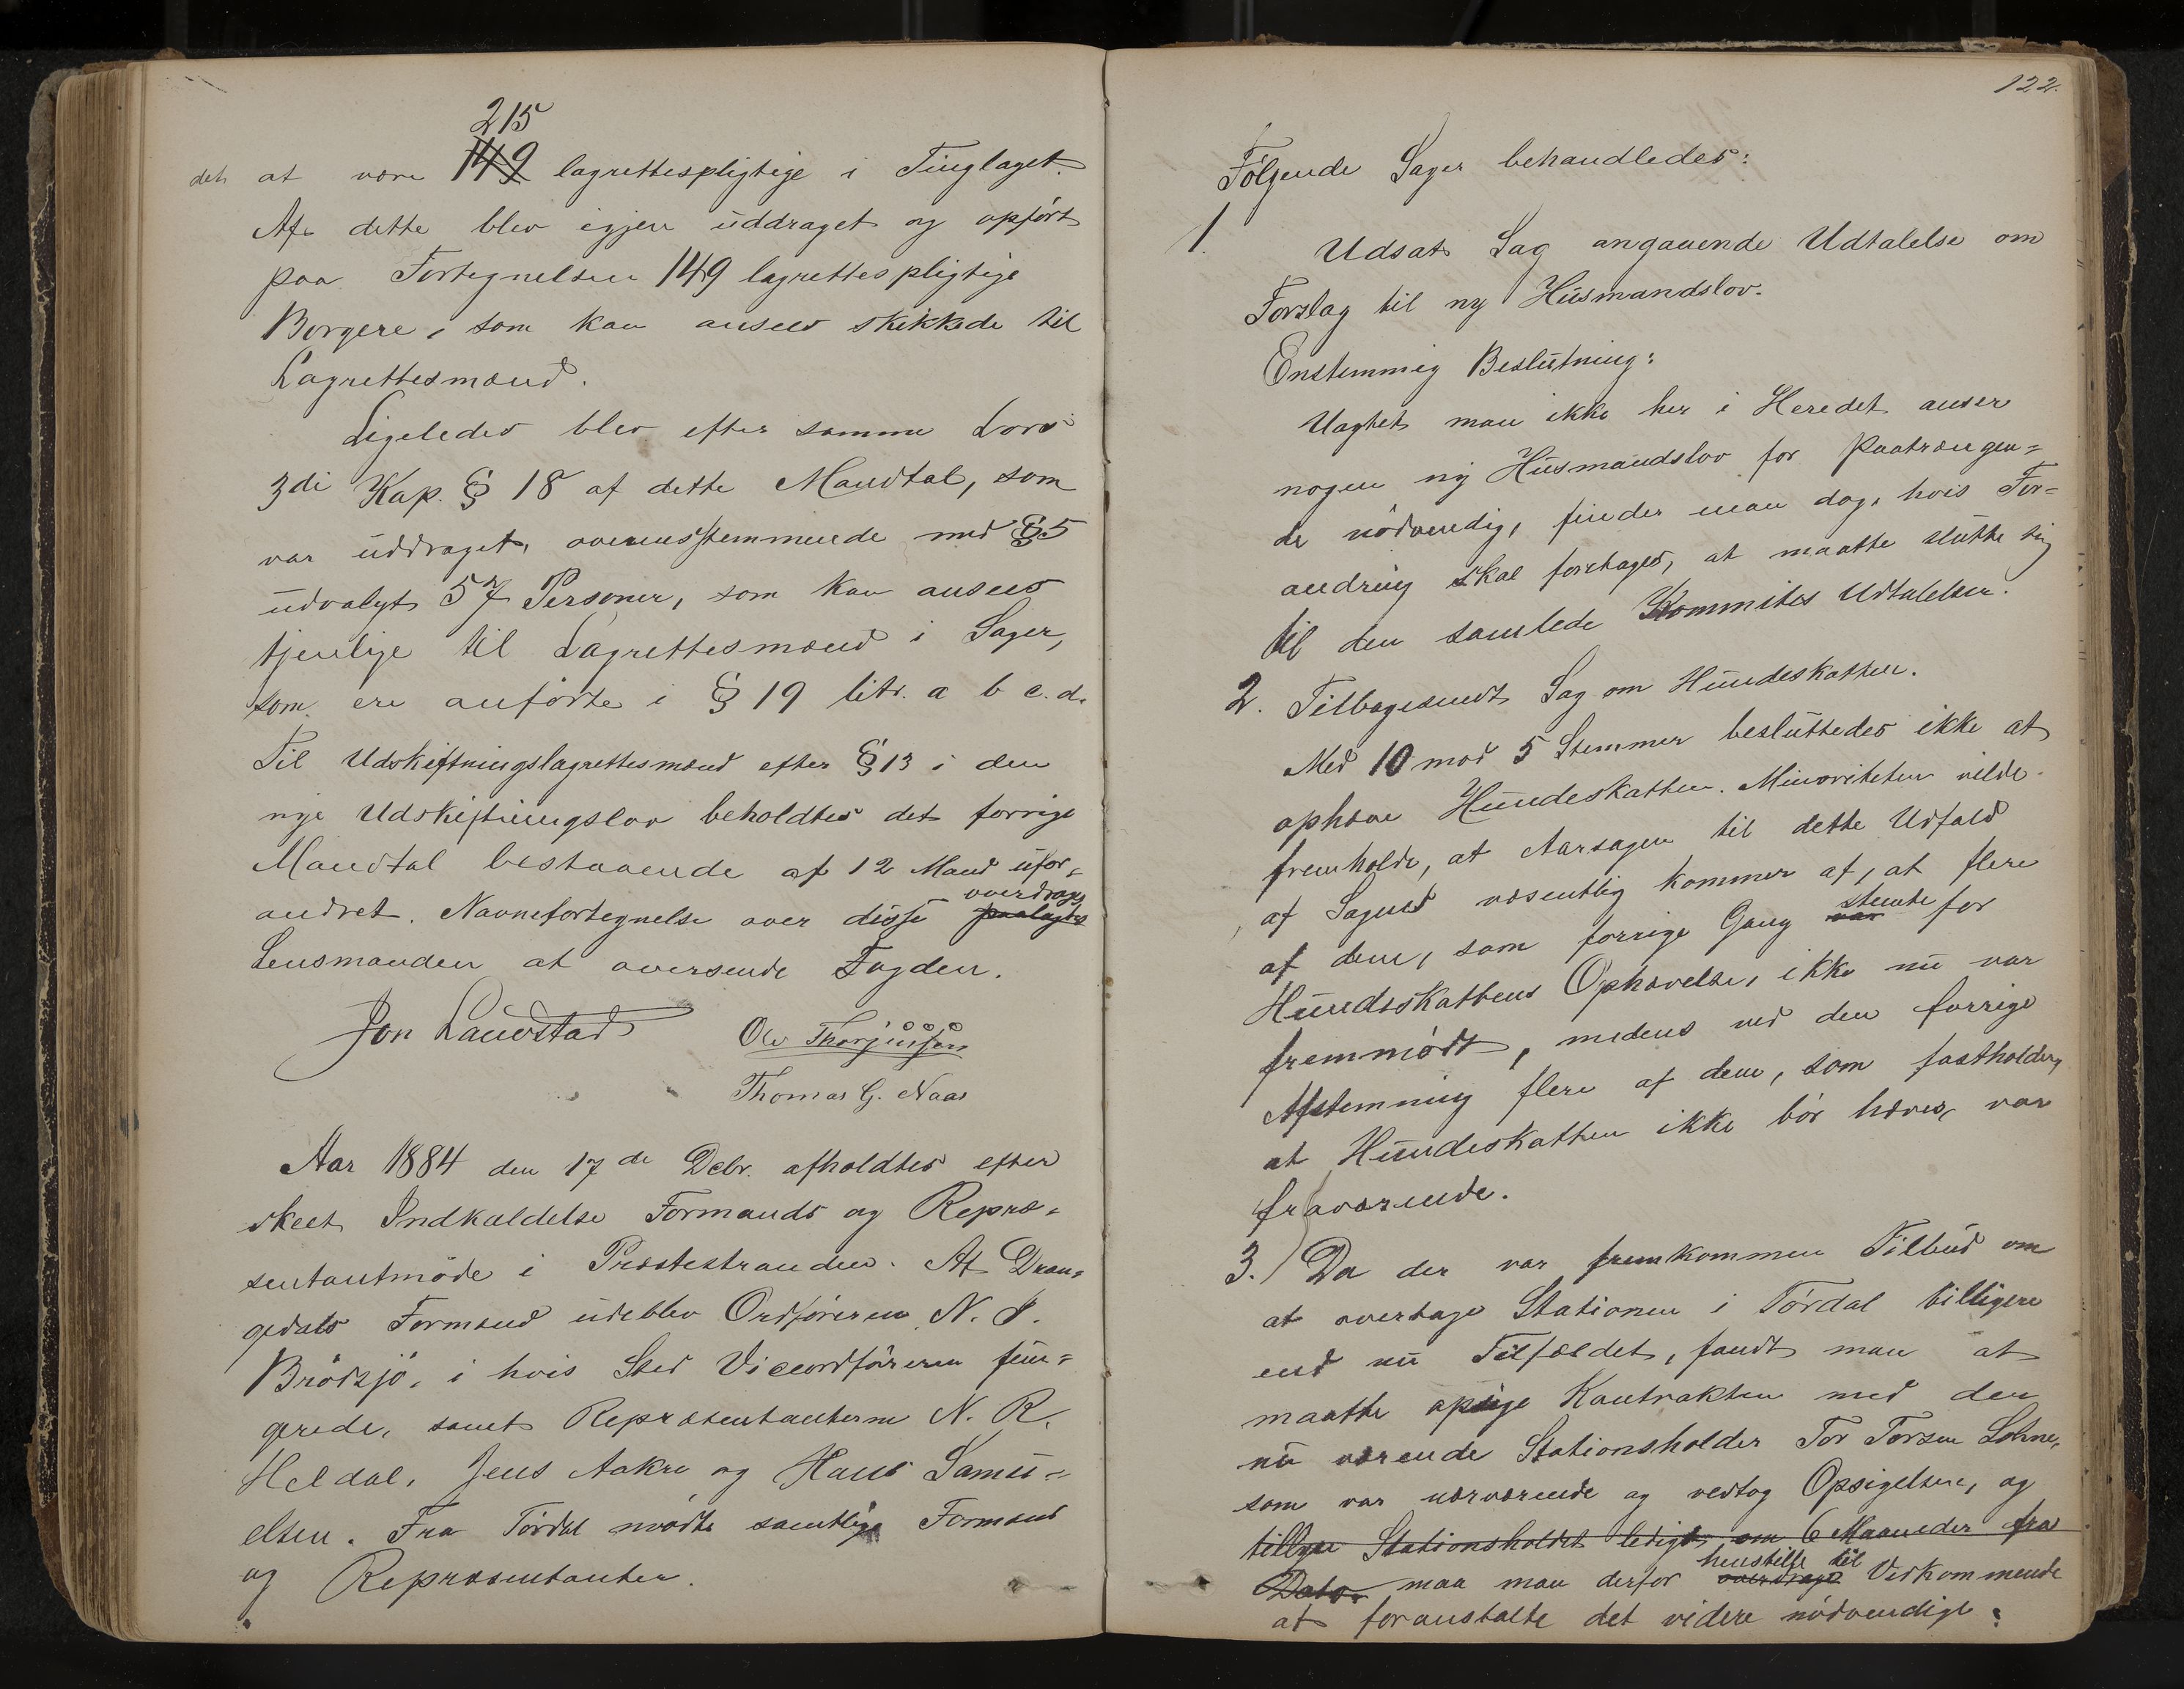 215
det at være 149 lagrettespligtige i Tinglaget.
Af dette blev igjen uddraget og opført
paa Fortegnelsen 149 lagrettespligtige
Borgere, som kan ansees skikkede til
Lagrettesmænd.
Ligeledes blev efter samme Lovs
3di Kap. § 18 af dette Mandtal, som
var uddraget, overensstemmende med § 5
udvalgt 57 Personer, som kan ansees
tjenlige til Lagrettesmænd i Sager,
som ere anførte i § 19 litr. a b c. d.
Til Udskiftningslagrettesmænd efter § 13 i den
nye Udskiftningslov beholdtes det forrige
Mandtal bestaaende af 12 Mænd ufor-
andret. Navnefortegnelse over disse paalagdes overdrages
Lensmanden at oversende Fogden.
Jon Landstad Olv Thorjussen
Thomas G. Naas
Aar 1884 den 17de Debr. afholdtes efter
skeet Indkaldelse Formands og Repræ-
sentantmøde i Præstestranden. Af Dran-
gedals Formænd udeblev Ordføreren N. J.
Brødsjø, i hvis Sted Viceordføreren fun-
gerede, samt Repræsentanterne N. R.
Heldal, Jens Aakre og Hans Samu-
elsen. Fra Tørdal mødte samtlige Formænd
og Repræsentanter.
122.
Følgende Sager behandledes:
1. Udsat Sag angaaende Udtalelse om
Forslag til ny Husmandslov.
Enstemmig Beslutning:
Uagtet man ikke her i Heredet anser
nogen ny Husmandslov for paatrængen-
de nødvendig, finder man dog, hvis For-
andring skal foretages, at maatte slutte sig
til den samlede Kommites Udtalelser.
2. Tilbagesendt Sag om Hundeskatten.
Med 10 mod 5 Stemmer besluttedes ikke at
ophæve Hundeskatten. Minoriteten vilde
fremholde, at Aarsagen til dette Udfald
af Sagen væsentlig kommer af, at flere
af dem, som forrige Gang var stemte for
Hundeskattens Ophævelse, ikke nu var
fremmødt, medens ved den forrige
Afstemning flere af dem, som fastholder,
at Hundeskatten ikke bør hæves, var
fraværende.
3. Da der var fremkommen Tilbud om
at overtage Stationen i Tørdal billigere
end nu Tilfældet, fandt man at
maatte opsige Kontrakten med den
nu værende Stationsholder Tor Torsen Lohne,
som var nærværende og vedtog Opsigelsen, og
tillyse Stationsholdet ledigt om 6 Maaneder fra
Dato. maa man derfor overdrage henstille til Vedkommende
at foranstalte det videre nødvendige.